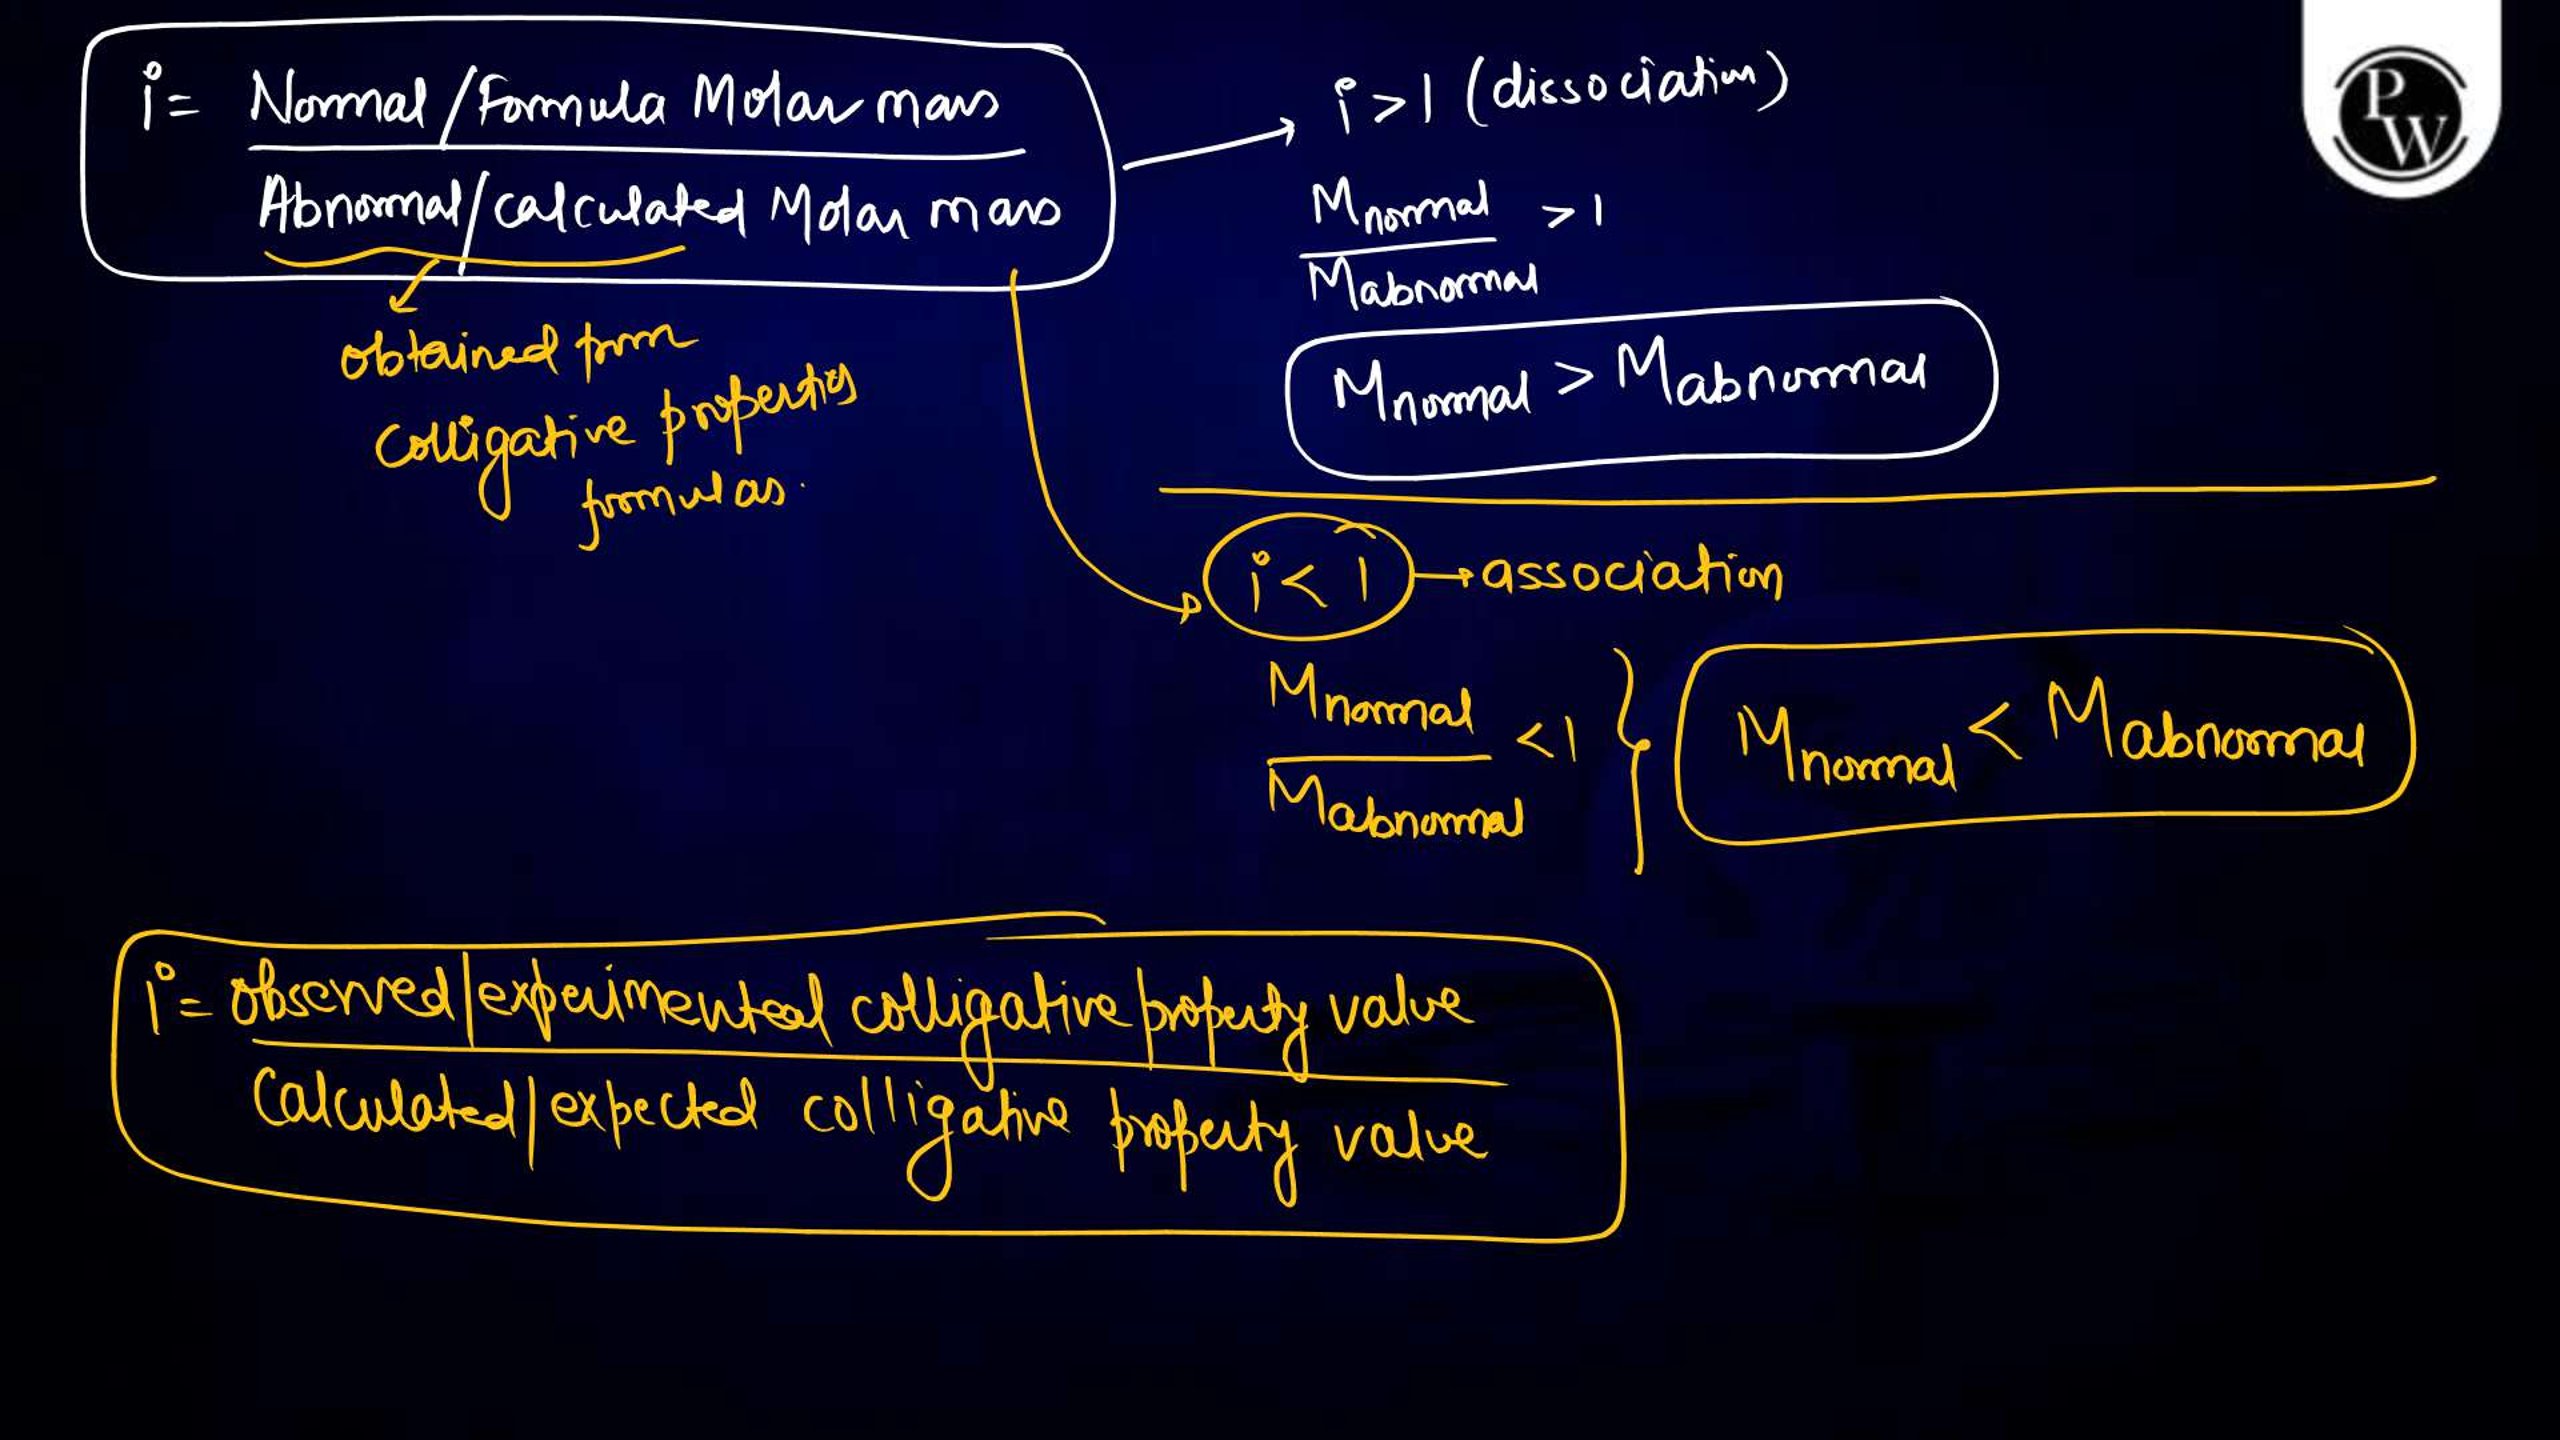 i = Normal/Formula Molar mass
Abnormal/calculated Molar mass
obtained from
colligative properties
formulas.
i > 1 (dissociation)
Mnormal > 1
Mabnormal
Mnormal > Mabnormal
i < 1 → association
Mnormal < 1
Mabnormal
Mnormal < Mabnormal
i = observed/experimental colligative property value
Calculated/expected colligative property value
PW